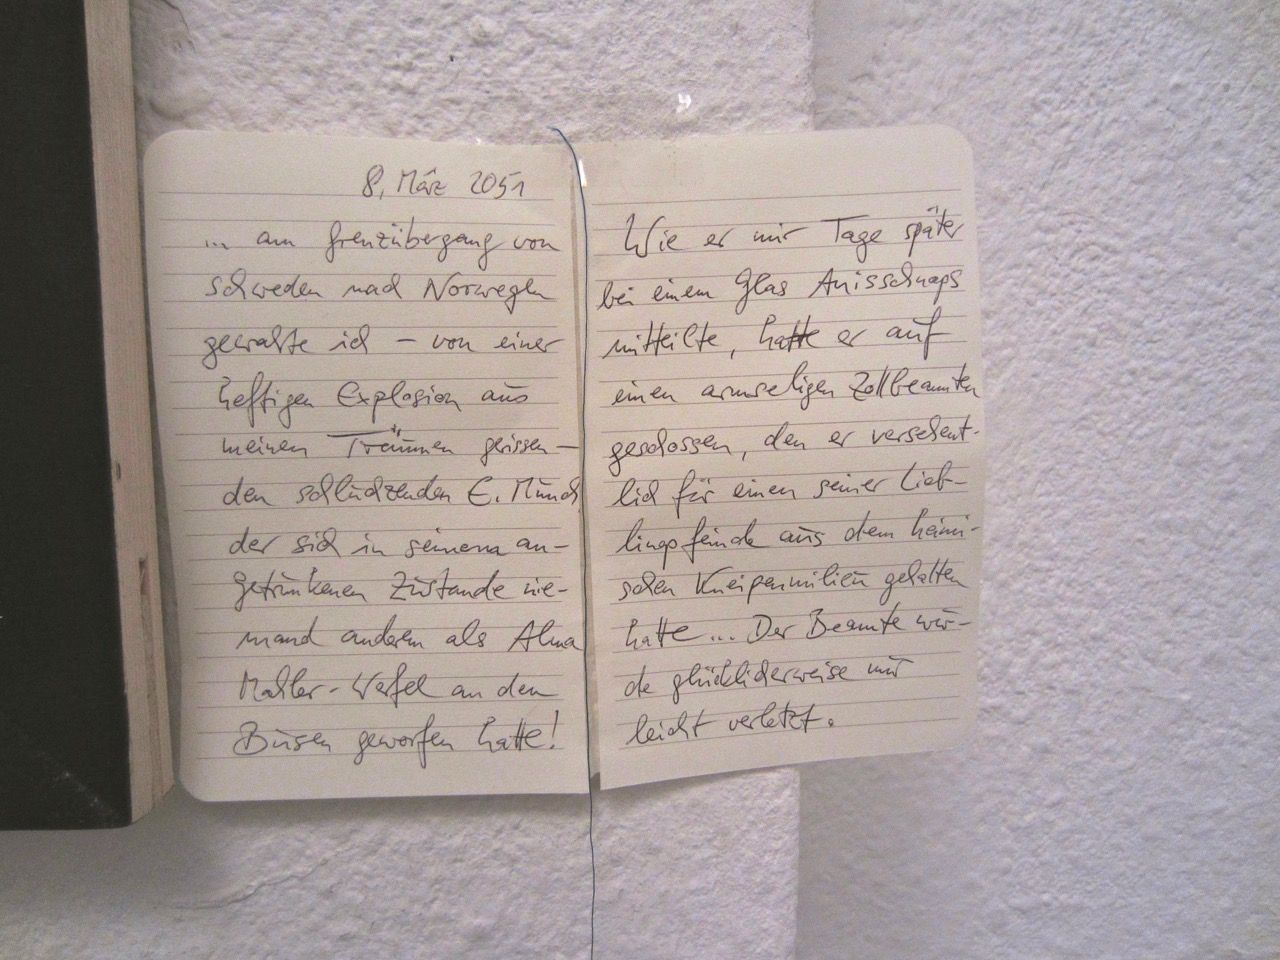 8. März 2051
... am Grenzübergang von
Schweden nach Norwegen
gewahrte ich – von einer
heftigen Explosion aus
meinen Träumen gerissen –
den schluchzenden E. Munch,
der sich in seinem an-
getrunkenen Zustande nie-
mand anderem als Alma
Mahler-Werfel an den
Busen geworfen hatte!
Wie er mir Tage später
bei einem Glas Anisschnaps
mitteilte, hatte er auf
einen armseligen Zollbeamten
geschossen, den er versehent-
lich für einen seiner Lieb-
lingsfeinde aus dem heimi-
schen Kneipenmilieu gehalten
hatte... Der Beamte wur-
de glücklicherweise nur
leicht verletzt.